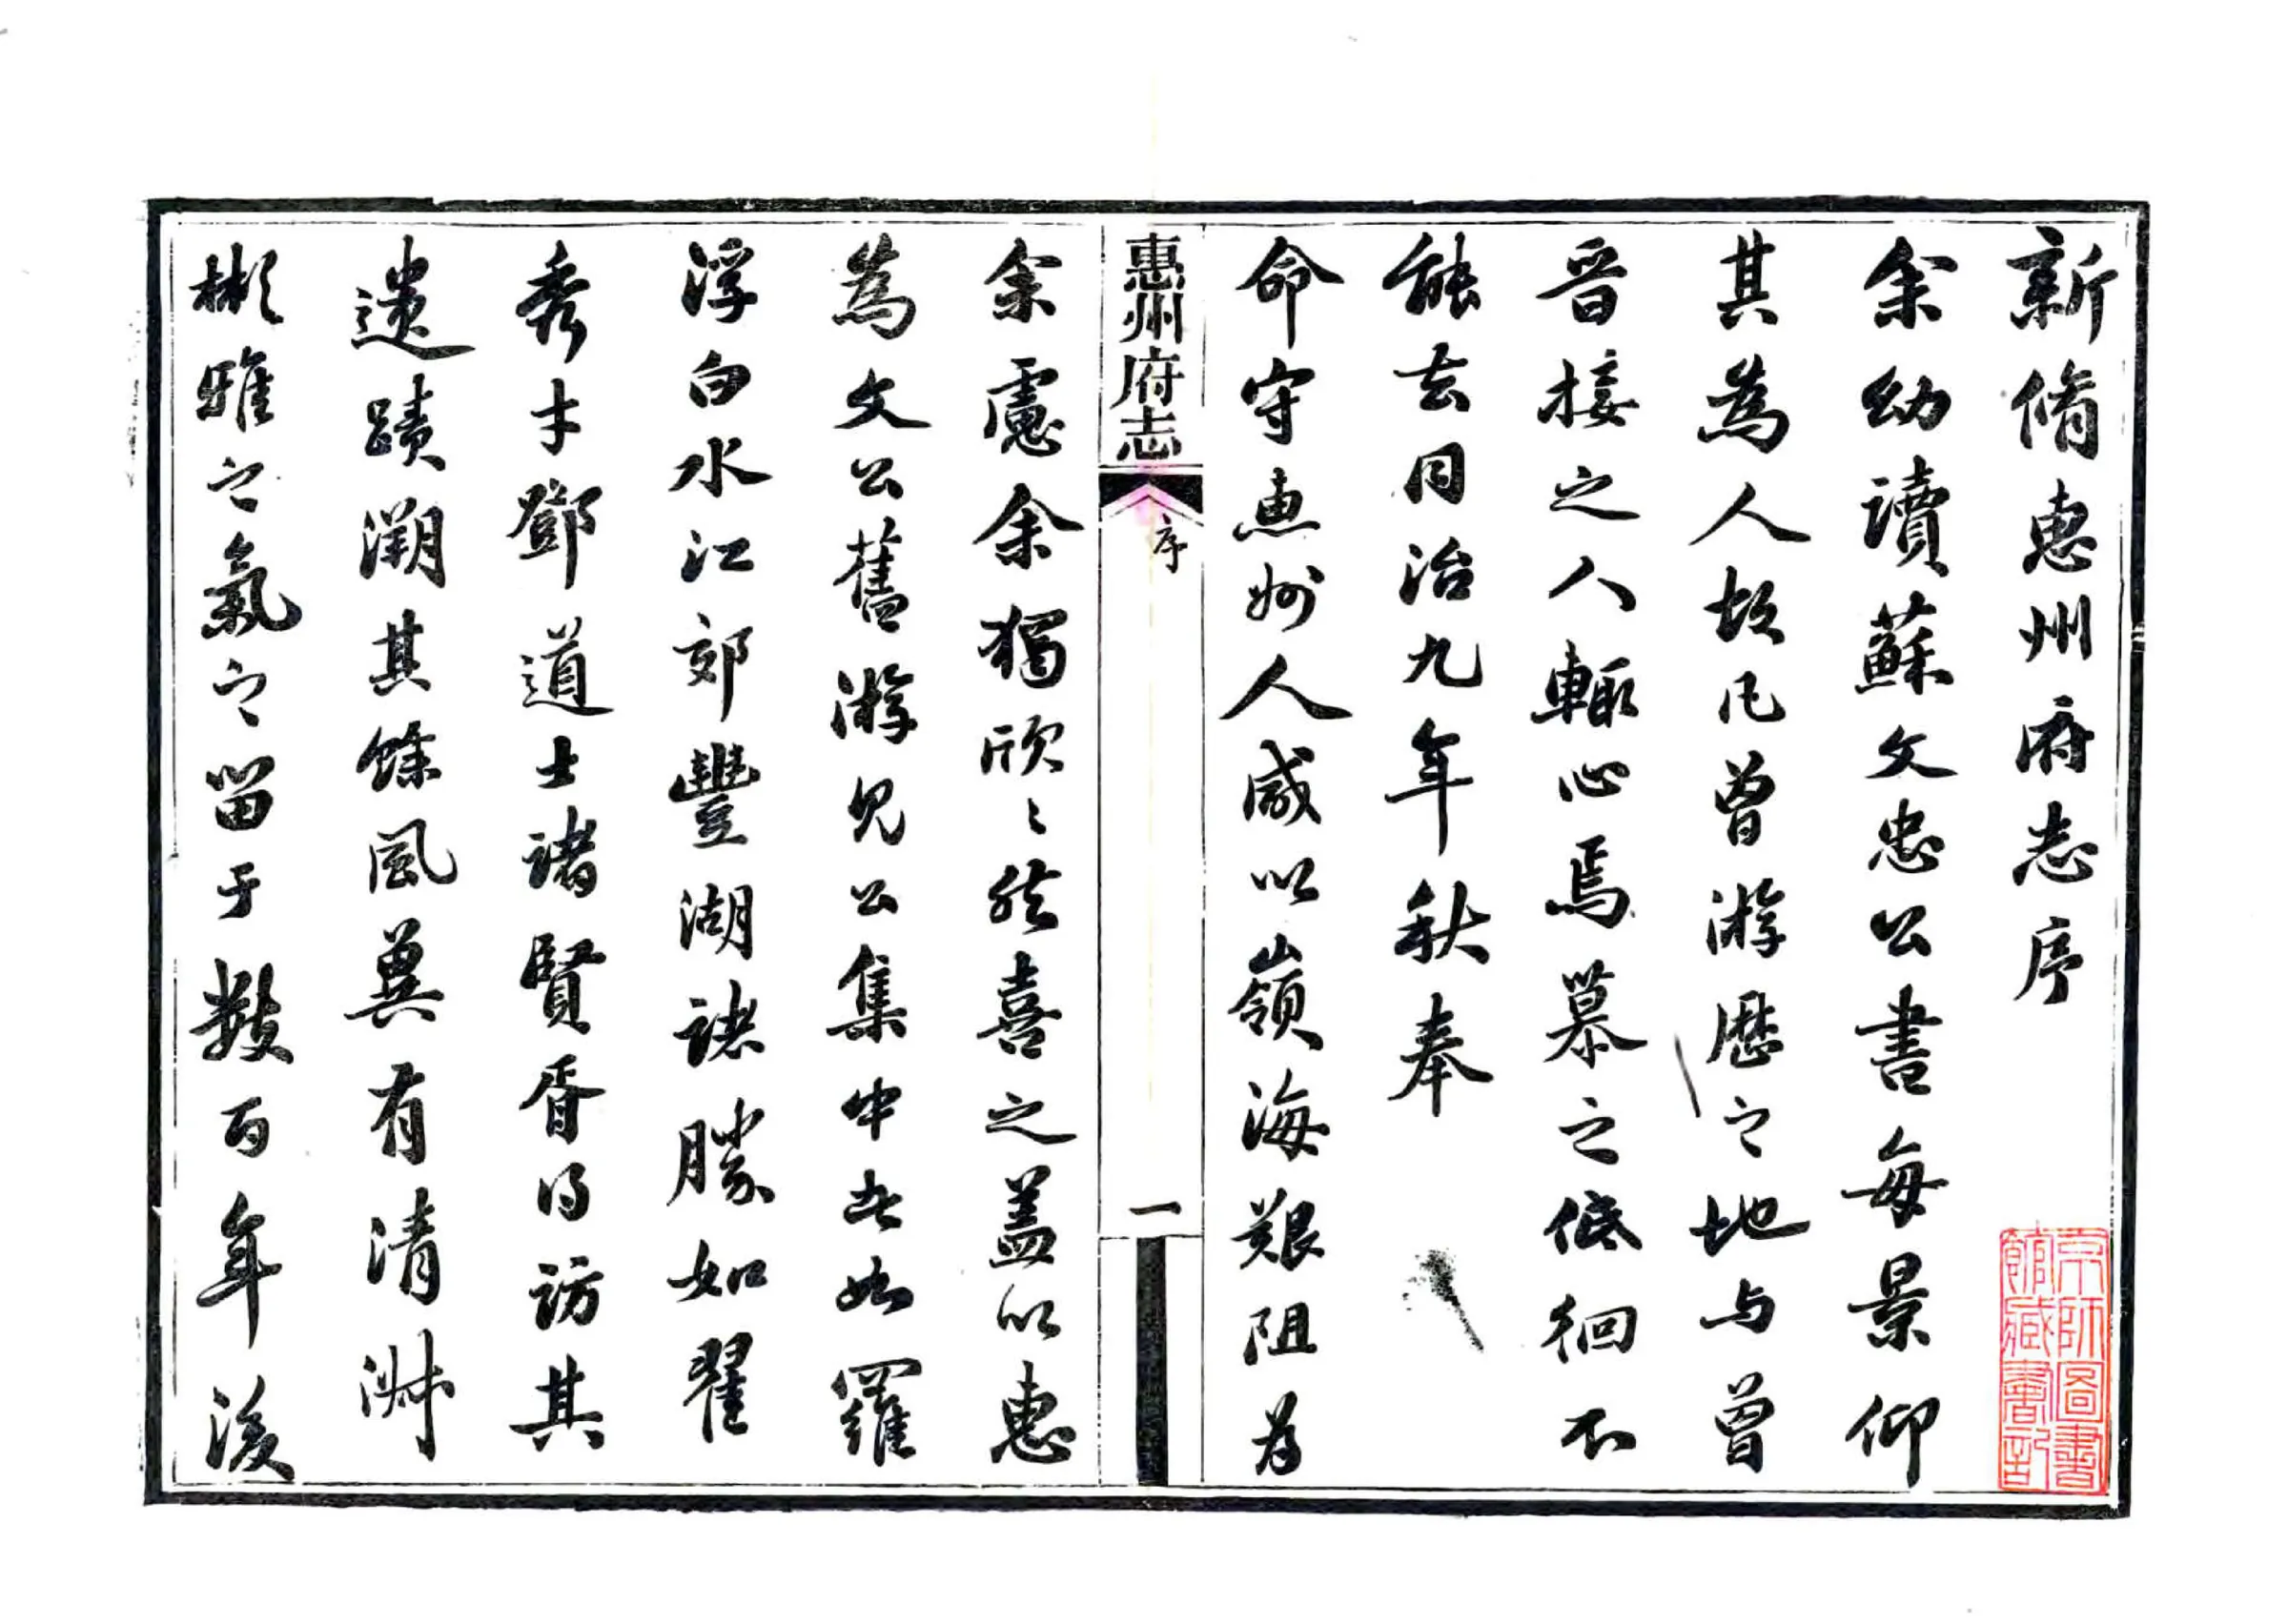 新脩惠州府志序
余幼讀蘇文忠公書每景仰
其為人故凡曾游歷之地与曾
晉接之人輙心焉慕之低徊不
能去同治九年秋奉
命守惠州人咸以嶺海艱阻為
余慮余獨欣〻然喜之盖以惠
為文公舊游見公集中者如羅
浮白水江郊豐湖諸勝如翟
秀才鄧道士諸賢胥得訪其
遺蹟溯其餘風兾有清淋
彬雅之氣之留于數百年後
惠州府志
序
一
京師圖書
館藏書記